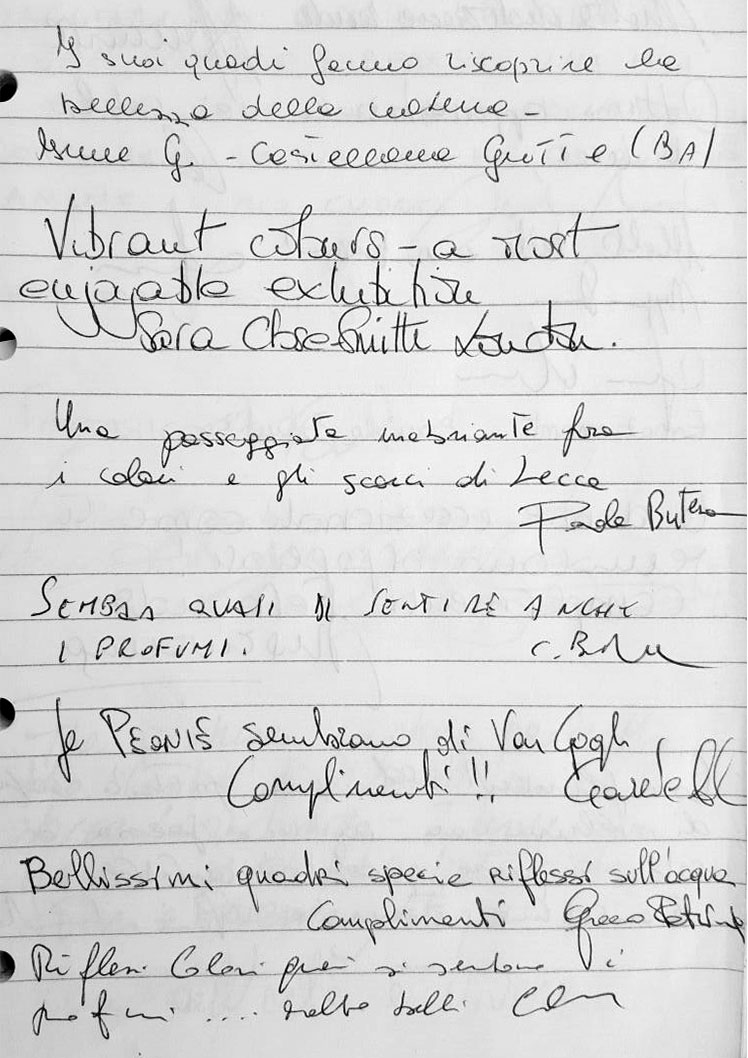 I suoi quadi fanno riscoprire la
bellezza della natura -
G. - Castellana Grotte (BA)
Vibrant colours - a most
enjoyable exhibition
Sara Close-Smith London.
Una passeggiata inebriante fra
i colori e gli scorci di Lecce
Paola Butera
SEMBRA QUASI DI SENTIRE ANCHE
I PROFUMI. C.
Le PEONIE sembrano di Van Gogh
Complimenti!!
Bellissimi quadri specie riflessi sull'acqua
Complimenti Greco
Riflessi Colori quasi si sentono i
profumi .... molto belli